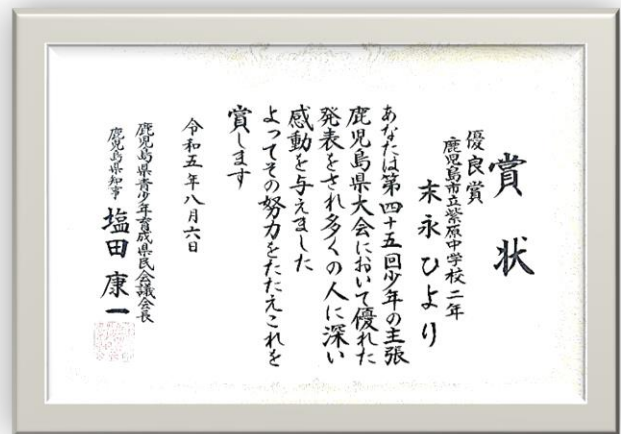 賞状
優良賞
鹿児島市立紫原中学校二年
末永ひより
あなたは第四十五回少年の主張
鹿児島県大会において優れた
発表をされ多くの人に深い
感動を与えました
よってその努力をたたえこれを
賞します
令和五年八月六日
鹿児島県青少年育成県民会議会長
鹿児島県知事 塩田康一